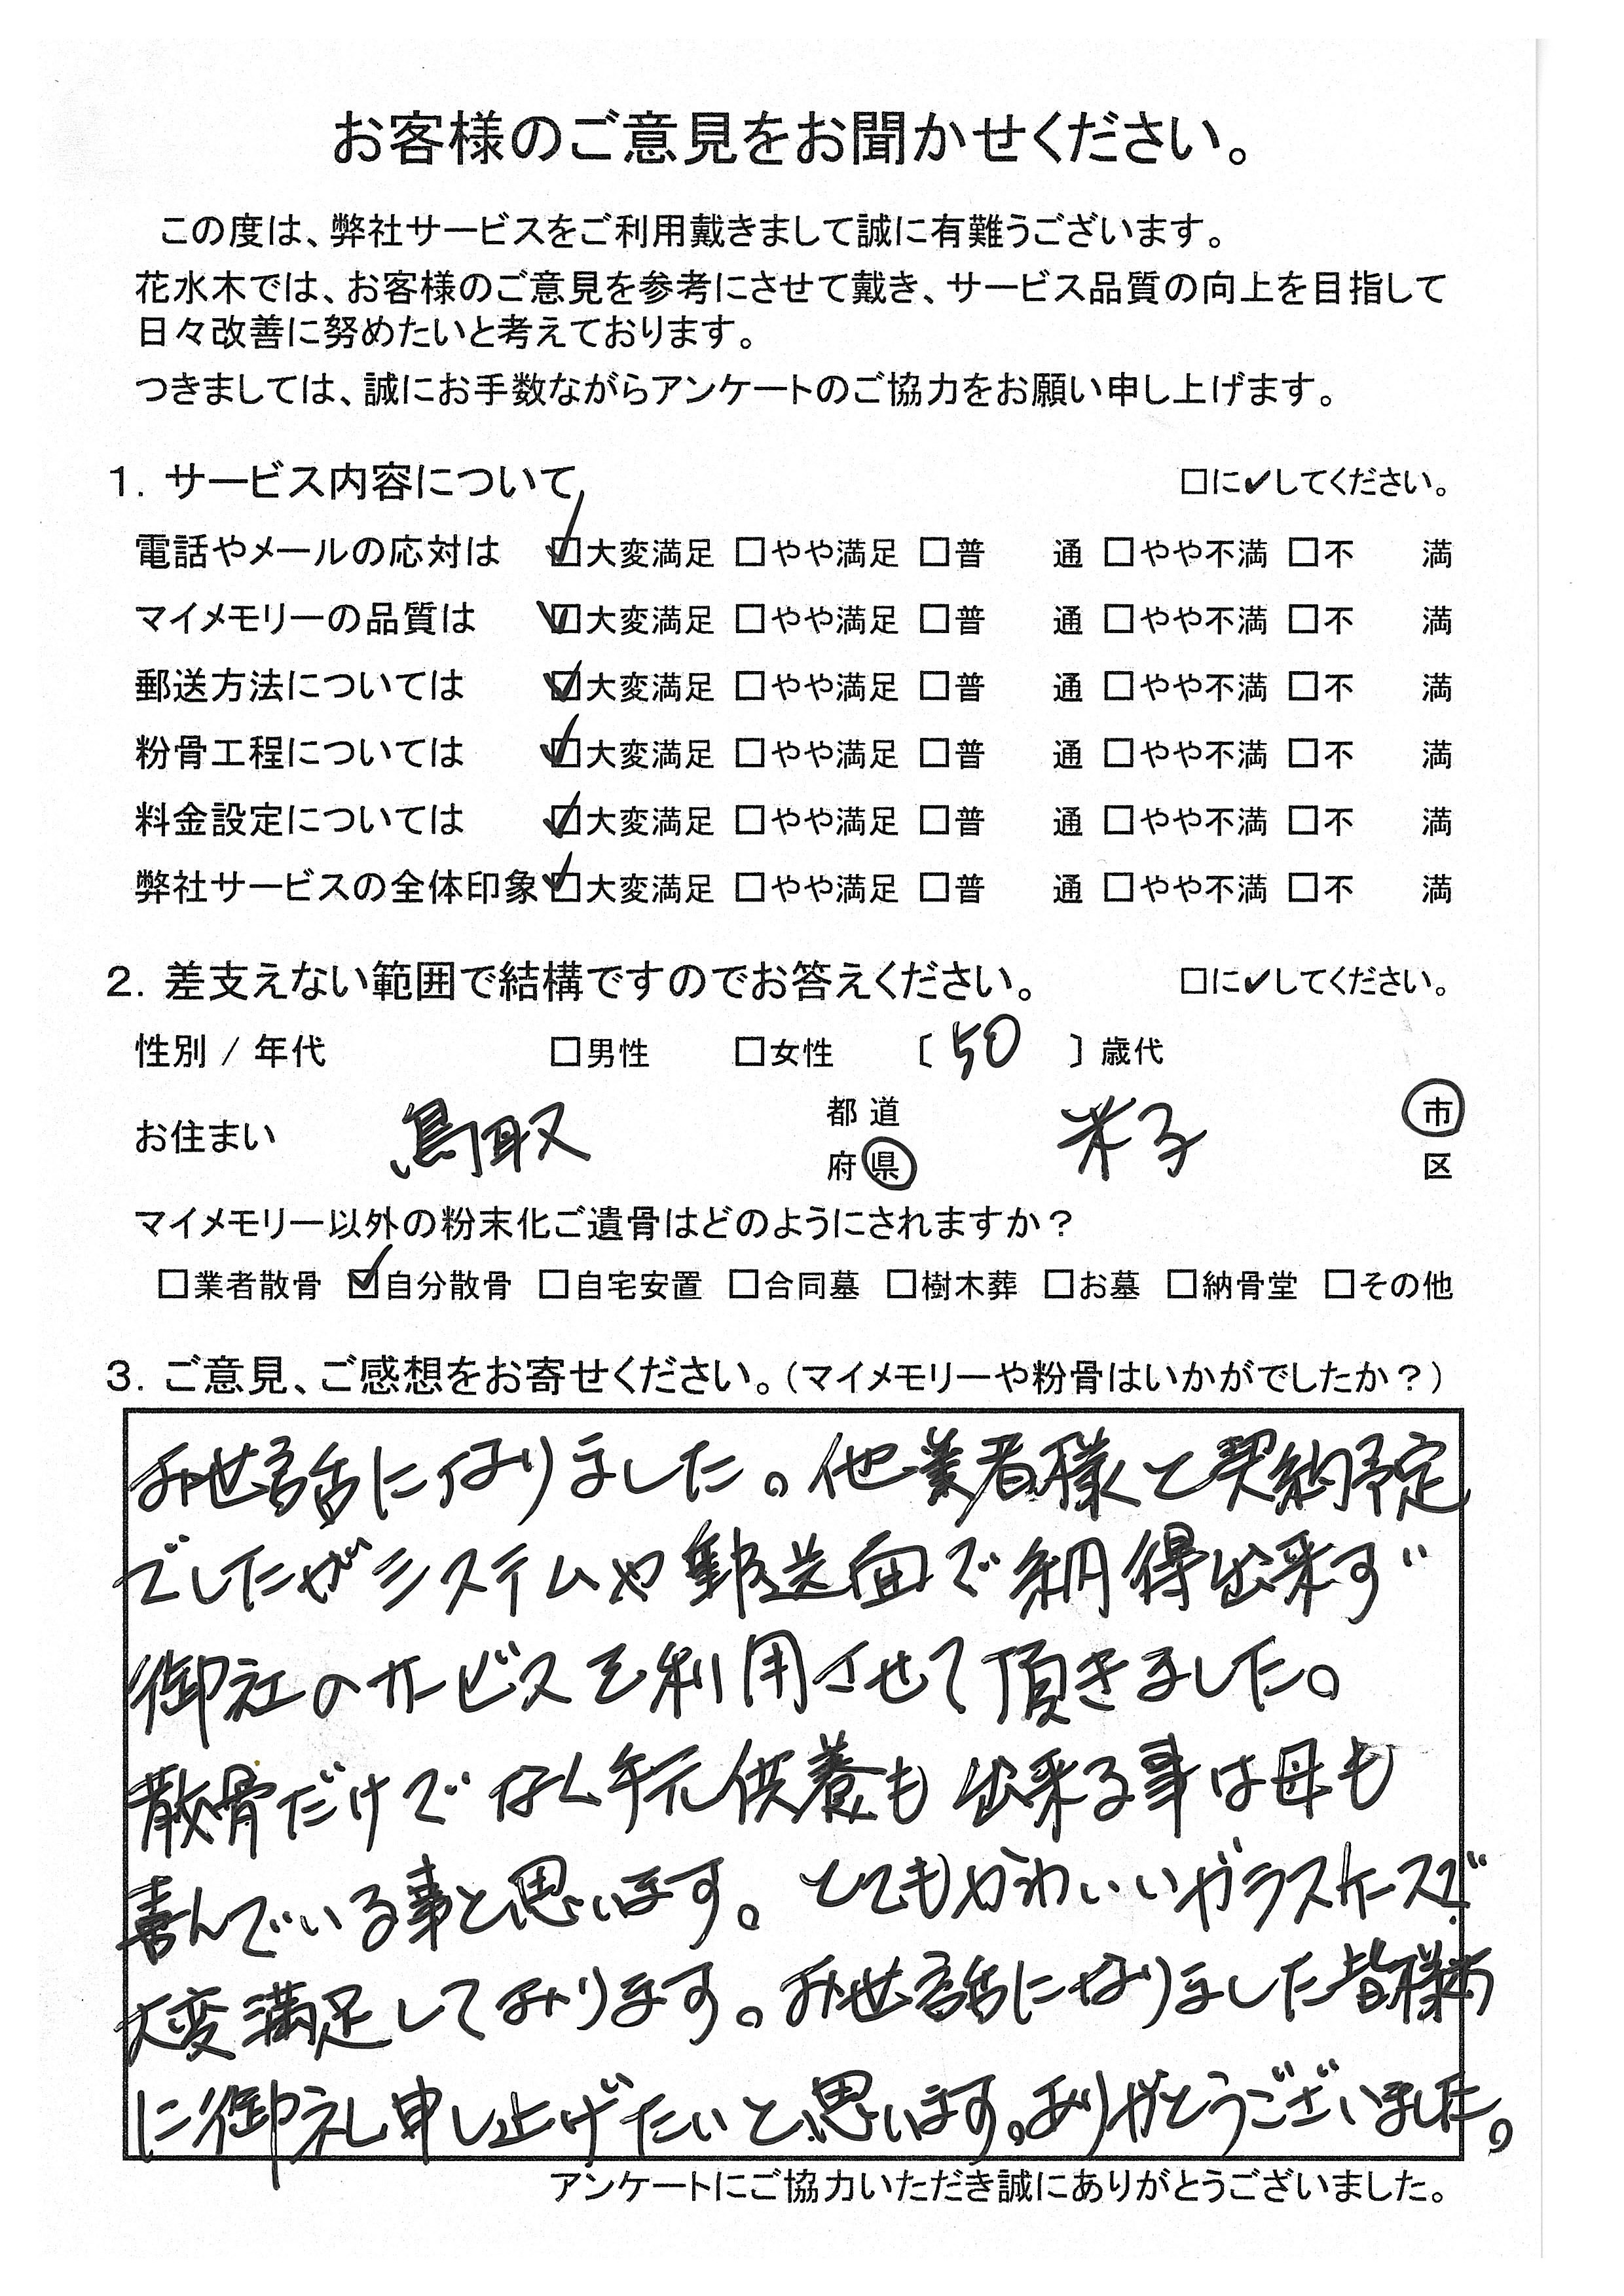 お客様のご意見をお聞かせください。
この度は、弊社サービスをご利用戴きまして誠に有難うございます。
花水木では、お客様のご意見を参考にさせて戴き、サービス品質の向上を目指して
日々改善に努めたいと考えております。
つきましては、誠にお手数ながらアンケートのご協力をお願い申し上げます。
1. サービス内容について □に✔してください。
電話やメールの応対は ☑大変満足 □やや満足 □普 通 □やや不満 □不 満
マイメモリーの品質は ☑大変満足 □やや満足 □普 通 □やや不満 □不 満
郵送方法については ☑大変満足 □やや満足 □普 通 □やや不満 □不 満
粉骨工程については ☑大変満足 □やや満足 □普 通 □やや不満 □不 満
料金設定については ☑大変満足 □やや満足 □普 通 □やや不満 □不 満
弊社サービスの全体印象 ☑大変満足 □やや満足 □普 通 □やや不満 □不 満
2. 差支えない範囲で結構ですのでお答えください。 □に✔してください。
性別 / 年代 □男性 □女性 〔 50 〕歳代
お住まい 鳥取 都 道 府 県 米子 市 区
マイメモリー以外の粉末化ご遺骨はどのようにされますか？
□業者散骨 ☑自分散骨 □自宅安置 □合同墓 □樹木葬 □お墓 □納骨堂 □その他
3. ご意見、ご感想をお寄せください。（マイメモリーや粉骨はいかがでしたか？）
お世話になりました。他業者様と契約予定
でしたがシステムや郵送面で納得出来ず
御社のサービスを利用させて頂きました。
散骨だけでなく手元供養も出来る事は母も
喜んでいる事と思います。とてもかわいいガラスケースで
大変満足しております。お世話になりました皆様方
に御礼申し上げたいと思います。ありがとうございました。
アンケートにご協力いただき誠にありがとうございました。